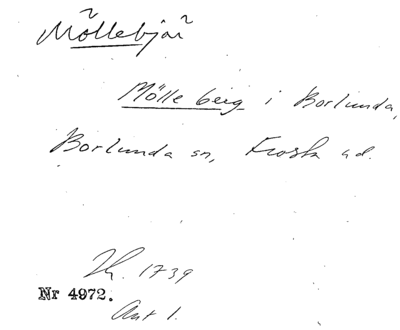 Möllebjär
Mölleberg i Borlunda,
Borlunda sn, Frosta hd.
Jh. 1739
Nr 4972.
Ant 1.